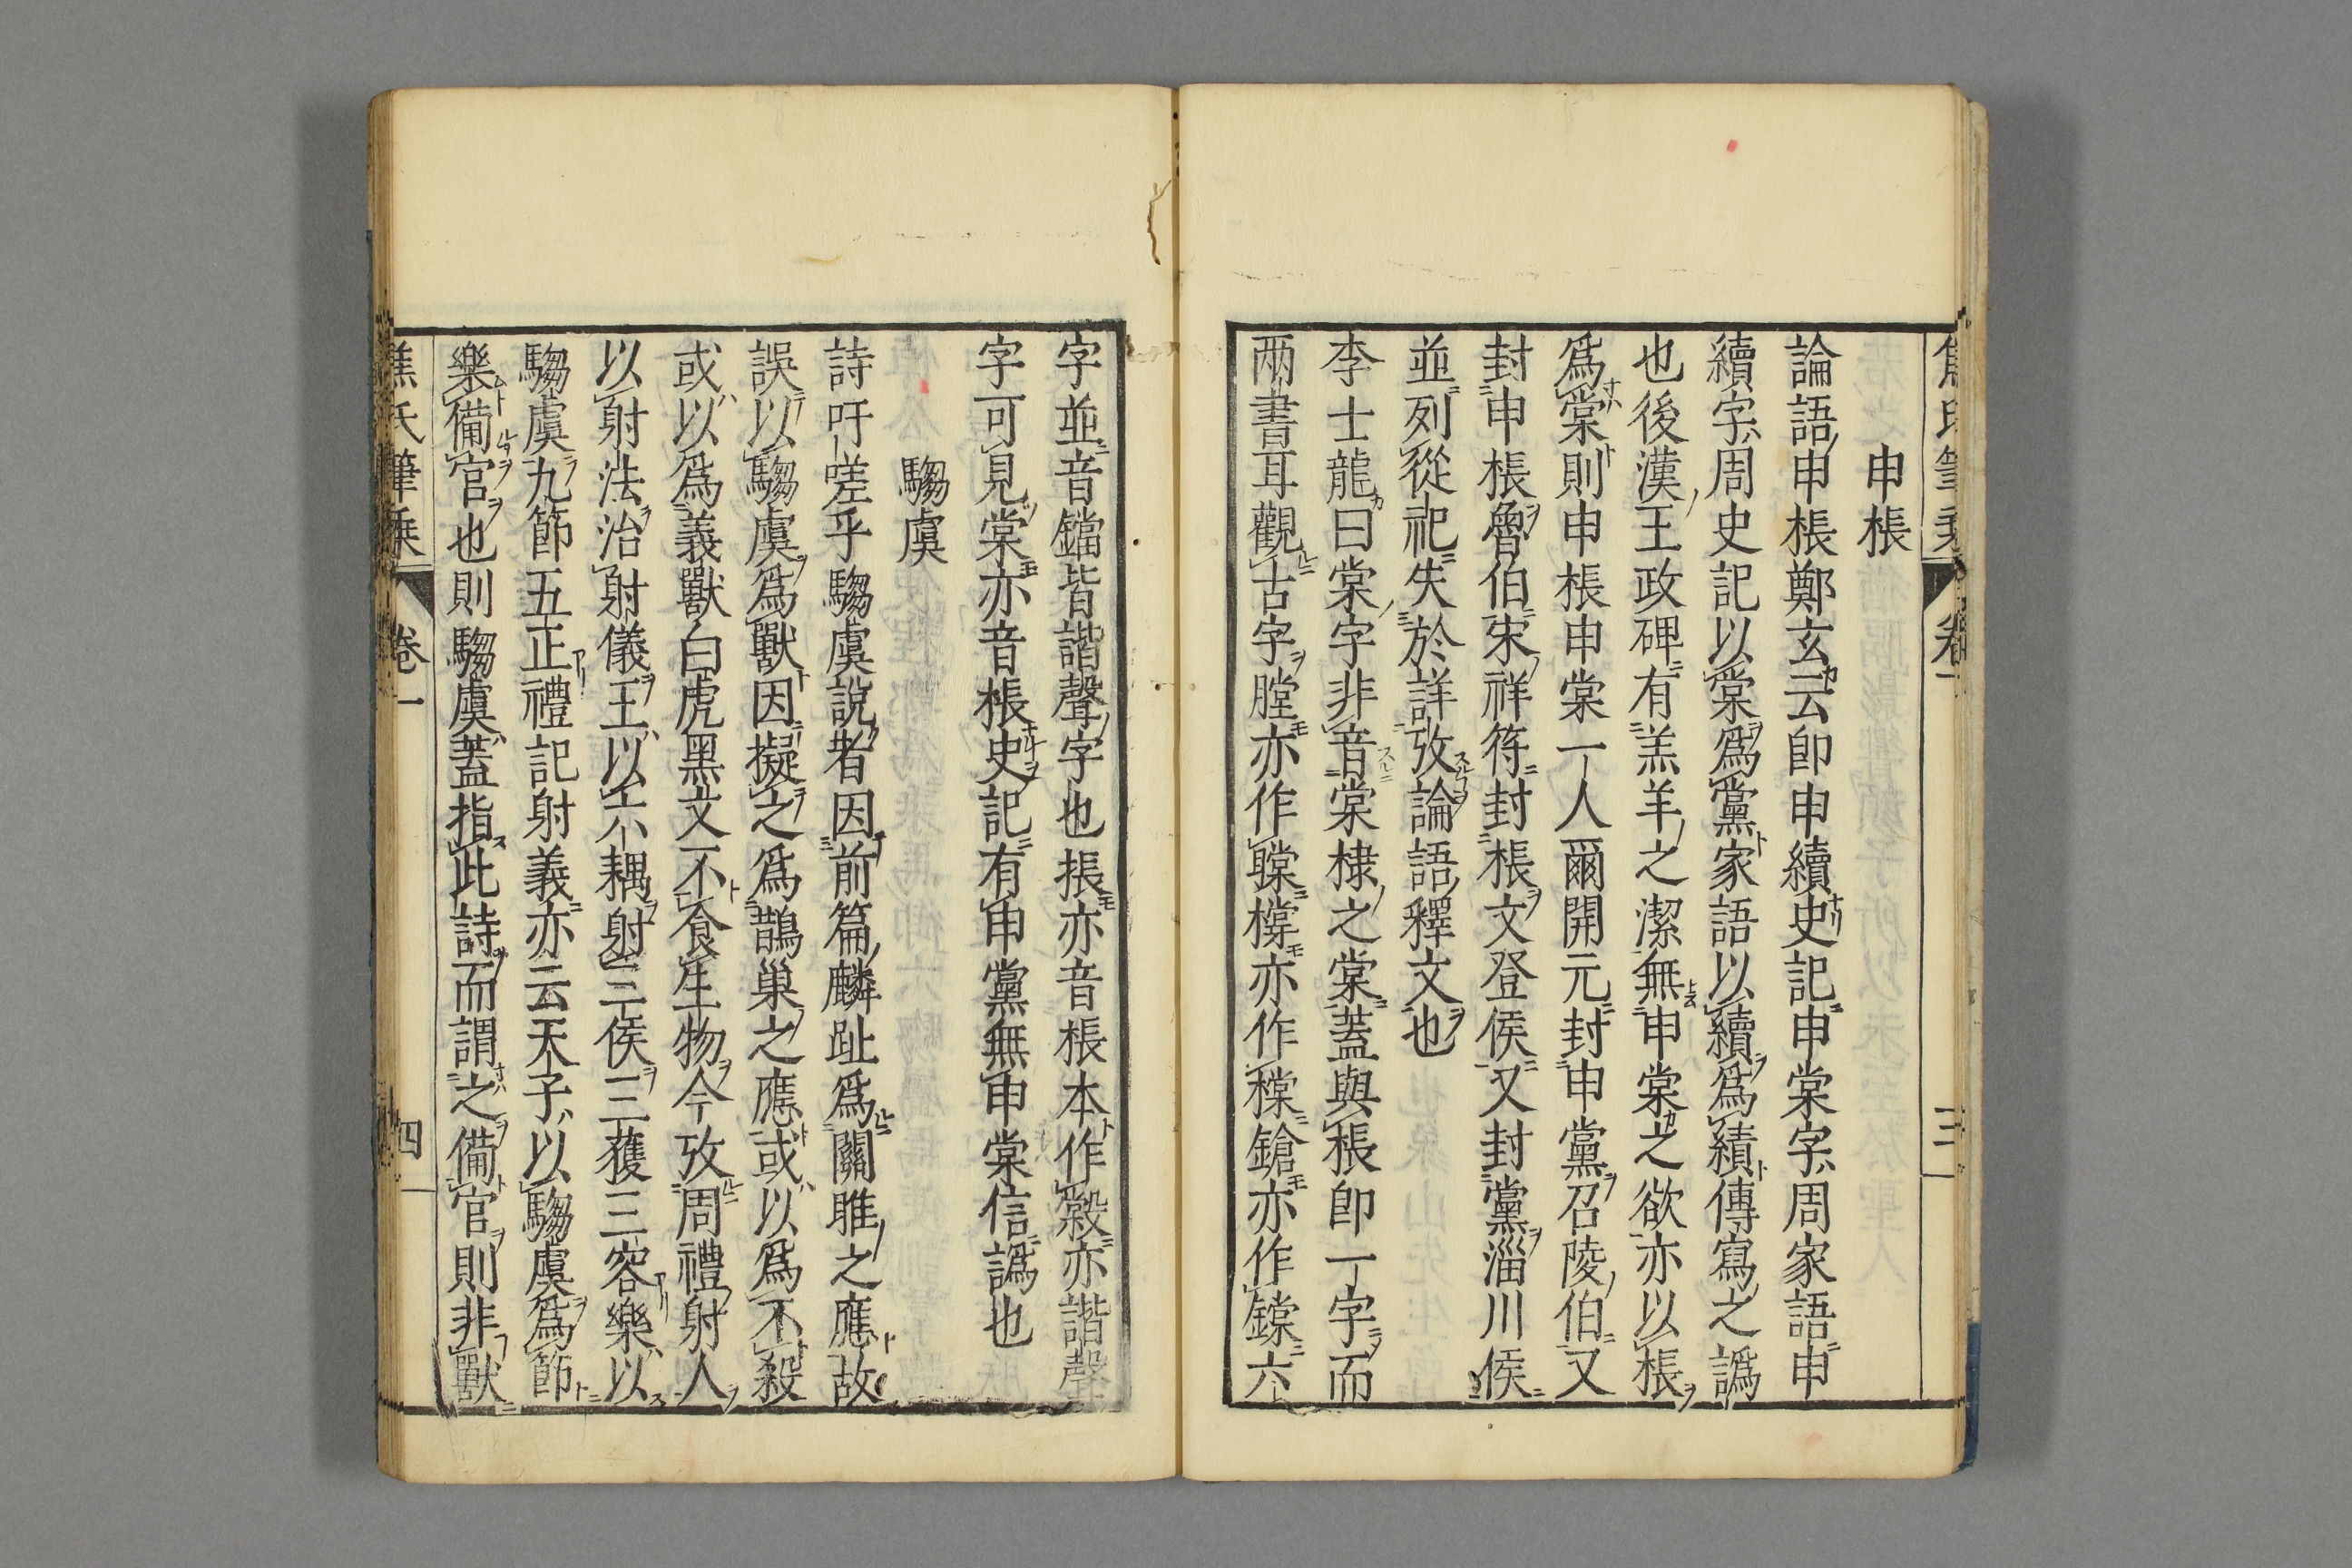 申棖
論語申棖鄭玄云卽申續史記申棠字周家語申
續字周史記以棠爲黨家語以續爲績傳寫之譌
也後漢王政碑有羔羊之潔無申棠之欲亦以棖
爲棠則申棖申棠一人爾開元封申黨召陵伯又
封申棖魯伯宋祥符封棖文登侯又封黨淄川侯
並列從祀失於詳攷論語釋文也
李士龍曰棠字非音棠棣之棠蓋與棖卽一字而
兩書耳觀古字瞠亦作䟫橕亦作樘鎗亦作鏜六
字並音鐺皆諧聲字也掁亦音棖本作㲂亦諧聲
字可見棠亦音棖史記有申黨無申棠信譌也
騶虞
詩吁嗟乎騶虞說者因前篇麟趾爲關雎之應故
誤以騶虞爲獸因擬之爲鵲巢之應或以爲不殺
或以爲義獸白虎黑文不食生物今攷周禮射人
以射法治射儀王以六耦射三侯三獲三容樂以
騶虞九節五正禮記射義亦云天子以騶虞爲節
樂備官也則騶虞蓋指此詩而謂之備官則非獸
焦氏筆乘 卷一 四